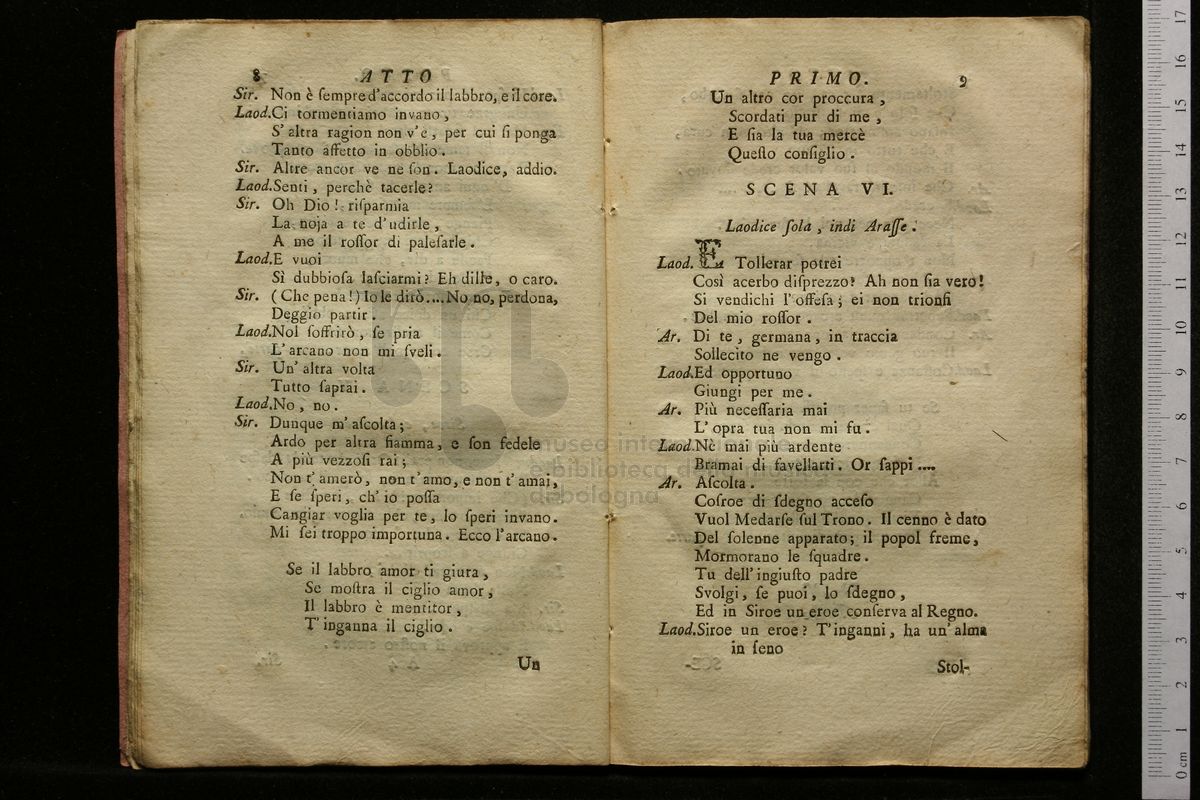 8 ATTO
Sir. Non è ſempre d'accordo il labbro, e il core.
Laod. Ci tormentiamo invano,
S' altra ragion non v'è, per cui ſi ponga
Tanto affetto in obblio.
Sir. Altre ancor ve ne ſon. Laodice, addio.
Laod. Senti, perchè tacerle?
Sir. Oh Dio! riſparmia
La noja a te d'udirle,
A me il roſſor di paleſarle.
Laod. E vuoi
Sì dubbioſa laſciarmi? Eh dille, o caro.
Sir. (Che pena!) Io le dirò.... No no, perdona,
Deggio partir.
Laod. Nol ſoffrirò, ſe pria
L' arcano non mi ſveli.
Sir. Un' altra volta
Tutto ſaprai.
Laod. No, no.
Sir. Dunque m' aſcolta;
Ardo per altra fiamma, e ſon fedele
A più vezzoſi rai;
Non t' amerò, non t'amo, e non t' amai,
E ſe ſperi, ch' io poſſa
Cangiar voglia per te, lo ſperi invano.
Mi ſei troppo importuna. Ecco l'arcano.
Se il labbro amor ti giura,
Se moſtra il ciglio amor,
Il labbro è mentitor,
T' inganna il ciglio.
Un
PRIMO. 9
Un altro cor proccura,
Scordati pur di me,
E ſia la tua mercè
Queſto conſiglio.
SCENA VI.
Laodice ſola, indi Araſſe.
Laod. E Tollerar potrei
Così acerbo diſprezzo? Ah non ſia vero!
Si vendichi l'offeſa; ei non trionfi
Del mio roſſor.
Ar. Di te, germana, in traccia
Sollecito ne vengo.
Laod. Ed opportuno
Giungi per me.
Ar. Più neceſſaria mai
L' opra tua non mi fu.
Laod. Nè mai più ardente
Bramai di favellarti. Or ſappi ....
Ar. Aſcolta.
Coſroe di ſdegno acceſo
Vuol Medarſe ſul Trono. Il cenno è dato
Del ſolenne apparato; il popol freme,
Mormorano le ſquadre.
Tu dell' ingiuſto padre
Svolgi, ſe puoi, lo ſdegno,
Ed in Siroe un eroe conſerva al Regno.
Laod. Siroe un eroe? T'inganni, ha un' alma
in ſeno
Stol-
museo internazionale
e biblioteca della musica
di bologna
0 cm 1 2 3 4 5 6 7 8 9 10 11 12 13 14 15 16 17